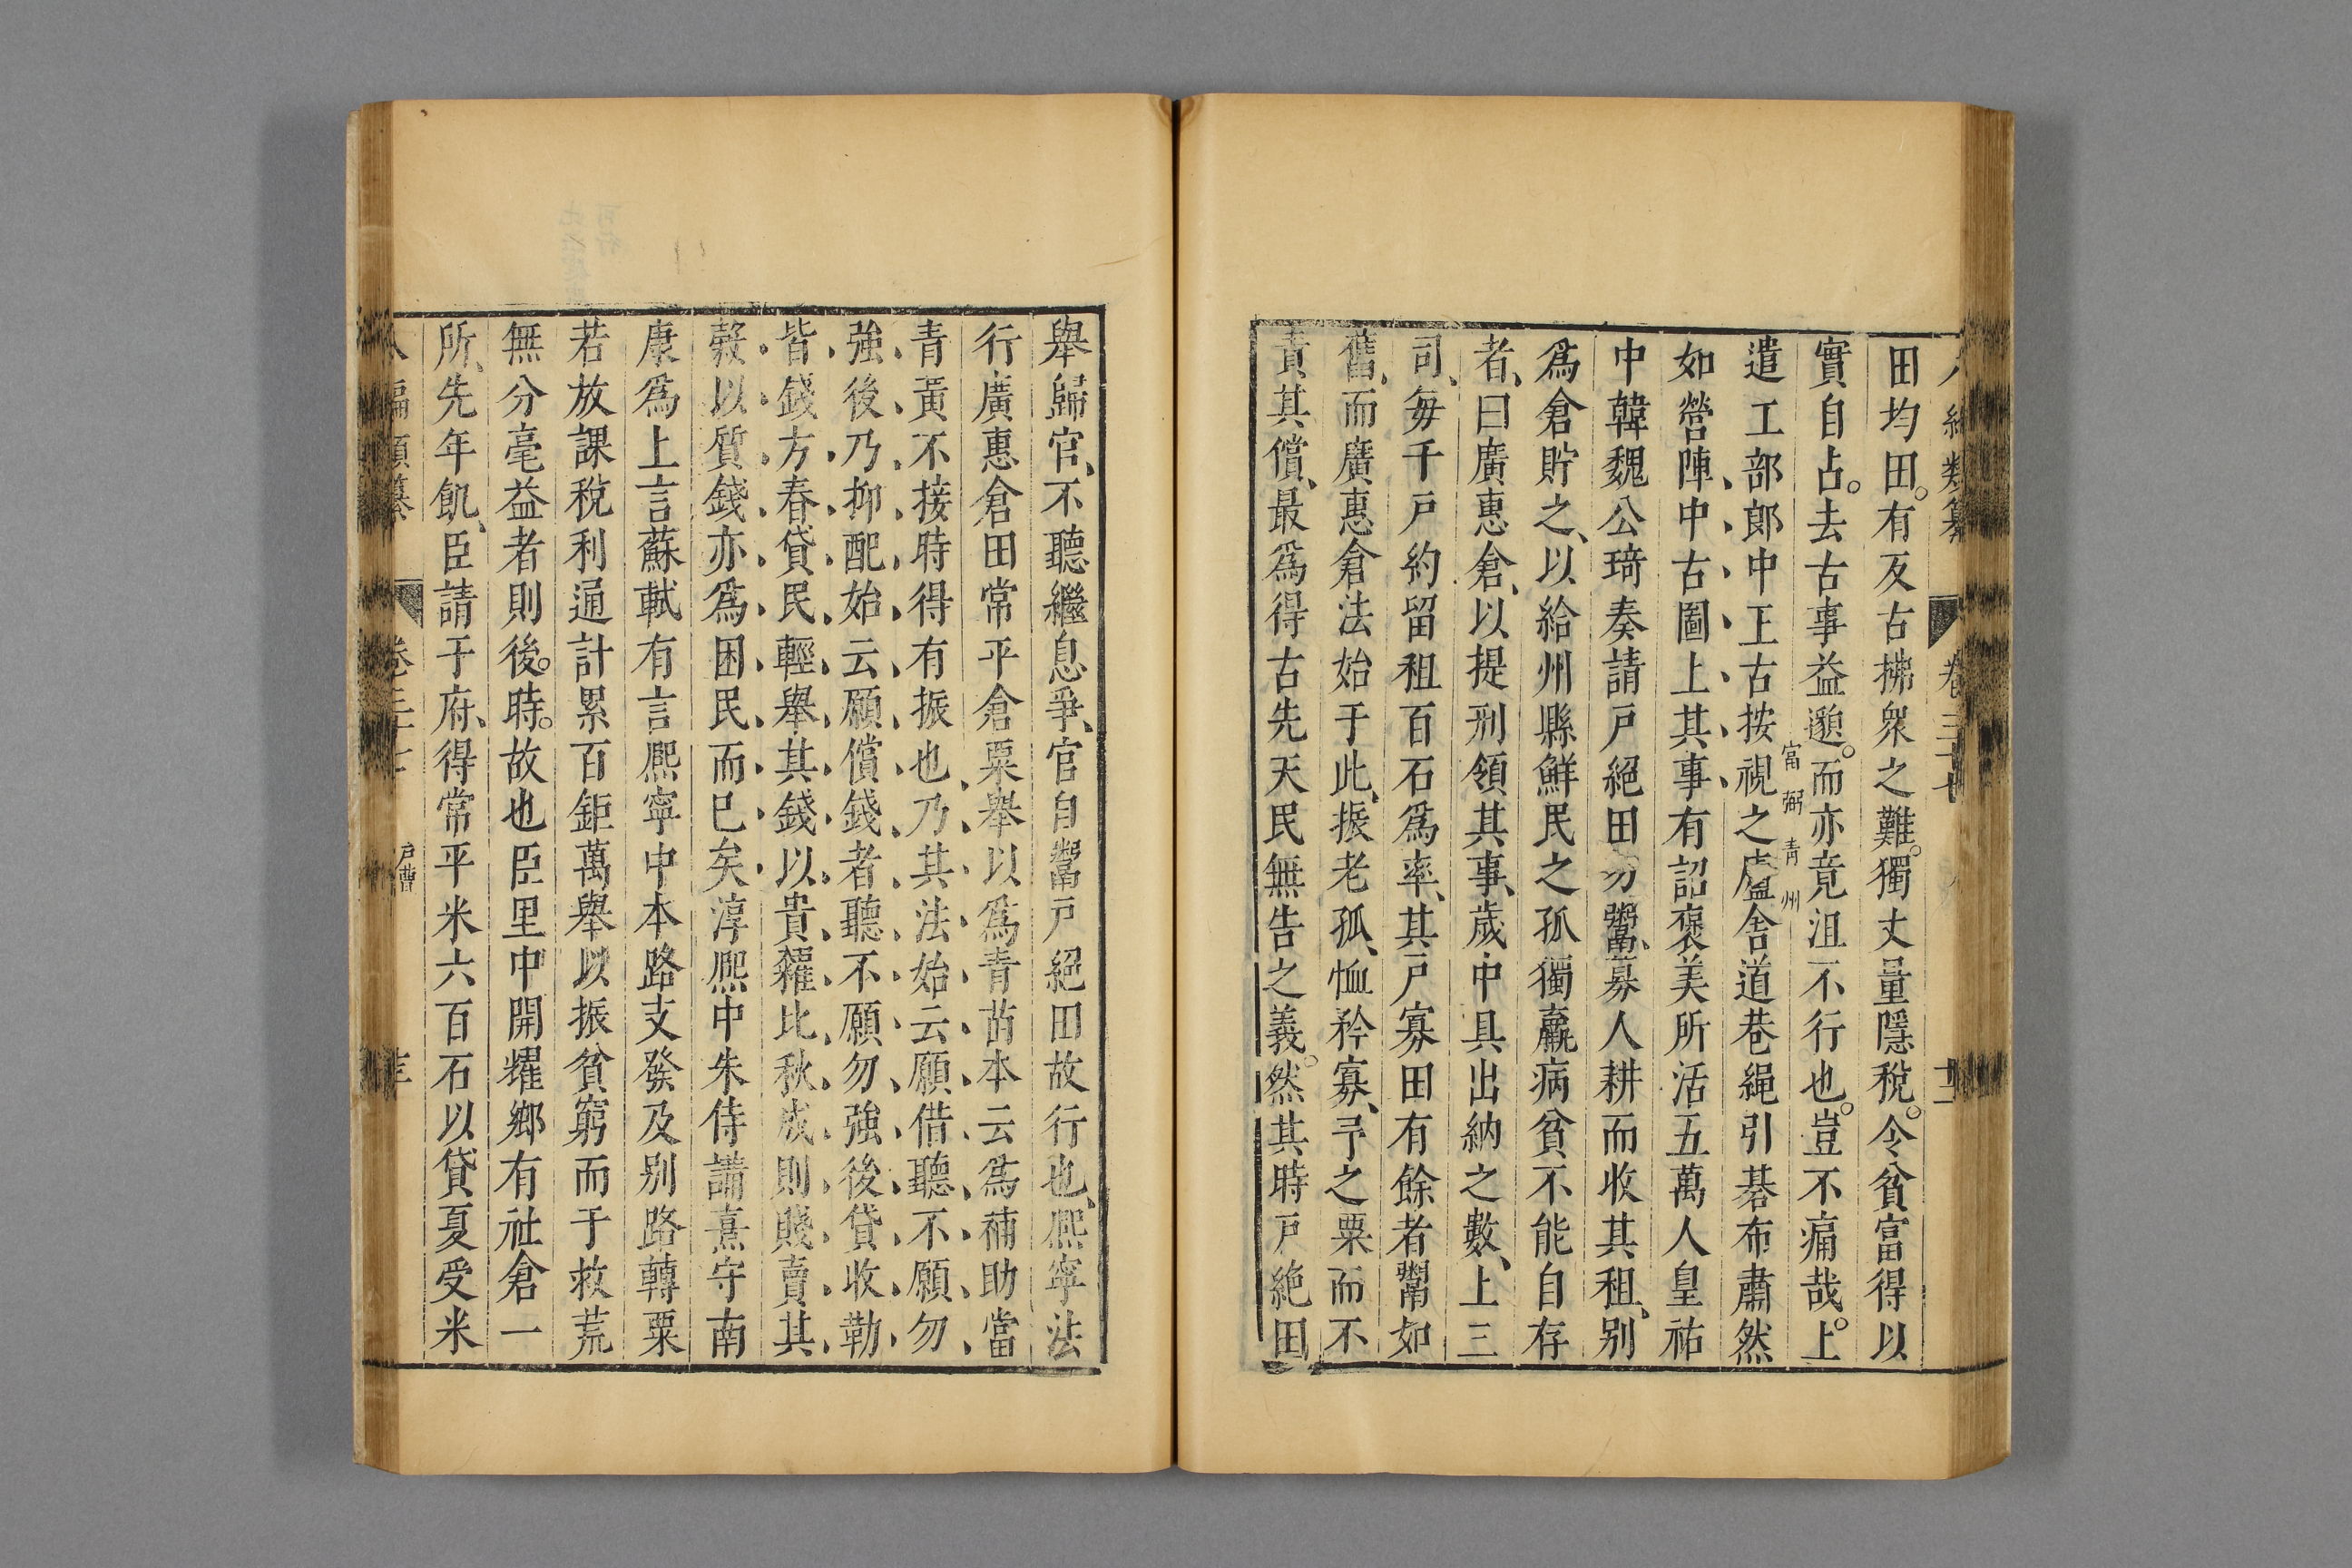 八編類纂 卷三十七 十二
田均田。有反古拂衆之難。獨丈量隱稅。令貧富得以
實自占。去古事益邈。而亦竟沮不行也。豈不痛哉。上
富弼青州
遣工部郎中王古按視之廬舍道巷繩引碁布肅然
如營陣、中古圖上其事有詔褒美所活五萬人皇祐
中韓魏公琦奏請戸絕田勿鬻、募人耕而收其租、别
爲倉貯之、以給州縣鮮民之孤獨羸病貧不能自存
者、曰廣惠倉、以提刑領其事、歲中具出納之數、上三
司、每千戸約留租百石爲率、其戸寡田有餘者鬻如
舊、而廣惠倉法始于此、振老孤、恤矜寡、予之粟而不
責其償、最爲得古先天民無告之義。然其時戸絕田
舉歸官、不聽繼息爭、官自鬻戸絕田故行也、熙寧法
行廣惠倉田常平倉粟舉以爲青苗本云爲補助當
青黃不接時得有振也、乃其法始云願借聽不願勿
強後乃抑配始云願償錢者聽不願勿強後貸收勒
皆錢方春貸民輕舉其錢以貴糴比秋成則賤賣其
穀以質錢亦爲困民而已矣淳熙中朱侍講熹守南
康爲上言蘇軾有言熙寧中本路支發及别路轉粟
若放課稅利通計累百鉅萬舉以振貧窮而于救荒
無分毫益者則後。時。故也臣里中開耀鄉有社倉一
所、先年飢、臣請于府、得常平米六百石以貸夏受米
八編類纂 卷三十七 戸曹